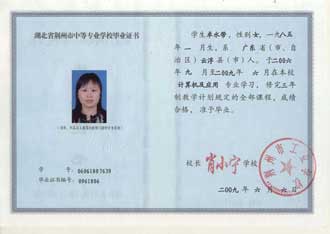 湖北省荆州市中等专业学校毕业证书
学 号: 06061887639
毕业证书编号: 0961806
学生卓水带，性别女，一九八五
年一月生，系广东省（市、自
治区）云浮县（市）人。于二00六
年九月至二00九年六月在本校
计算机及应用专业学习，修完五年
制教学计划规定的全部课程，成绩
合格，准予毕业。
校长 肖小宁 学校
二00九年六月六日
荆州市工业学校